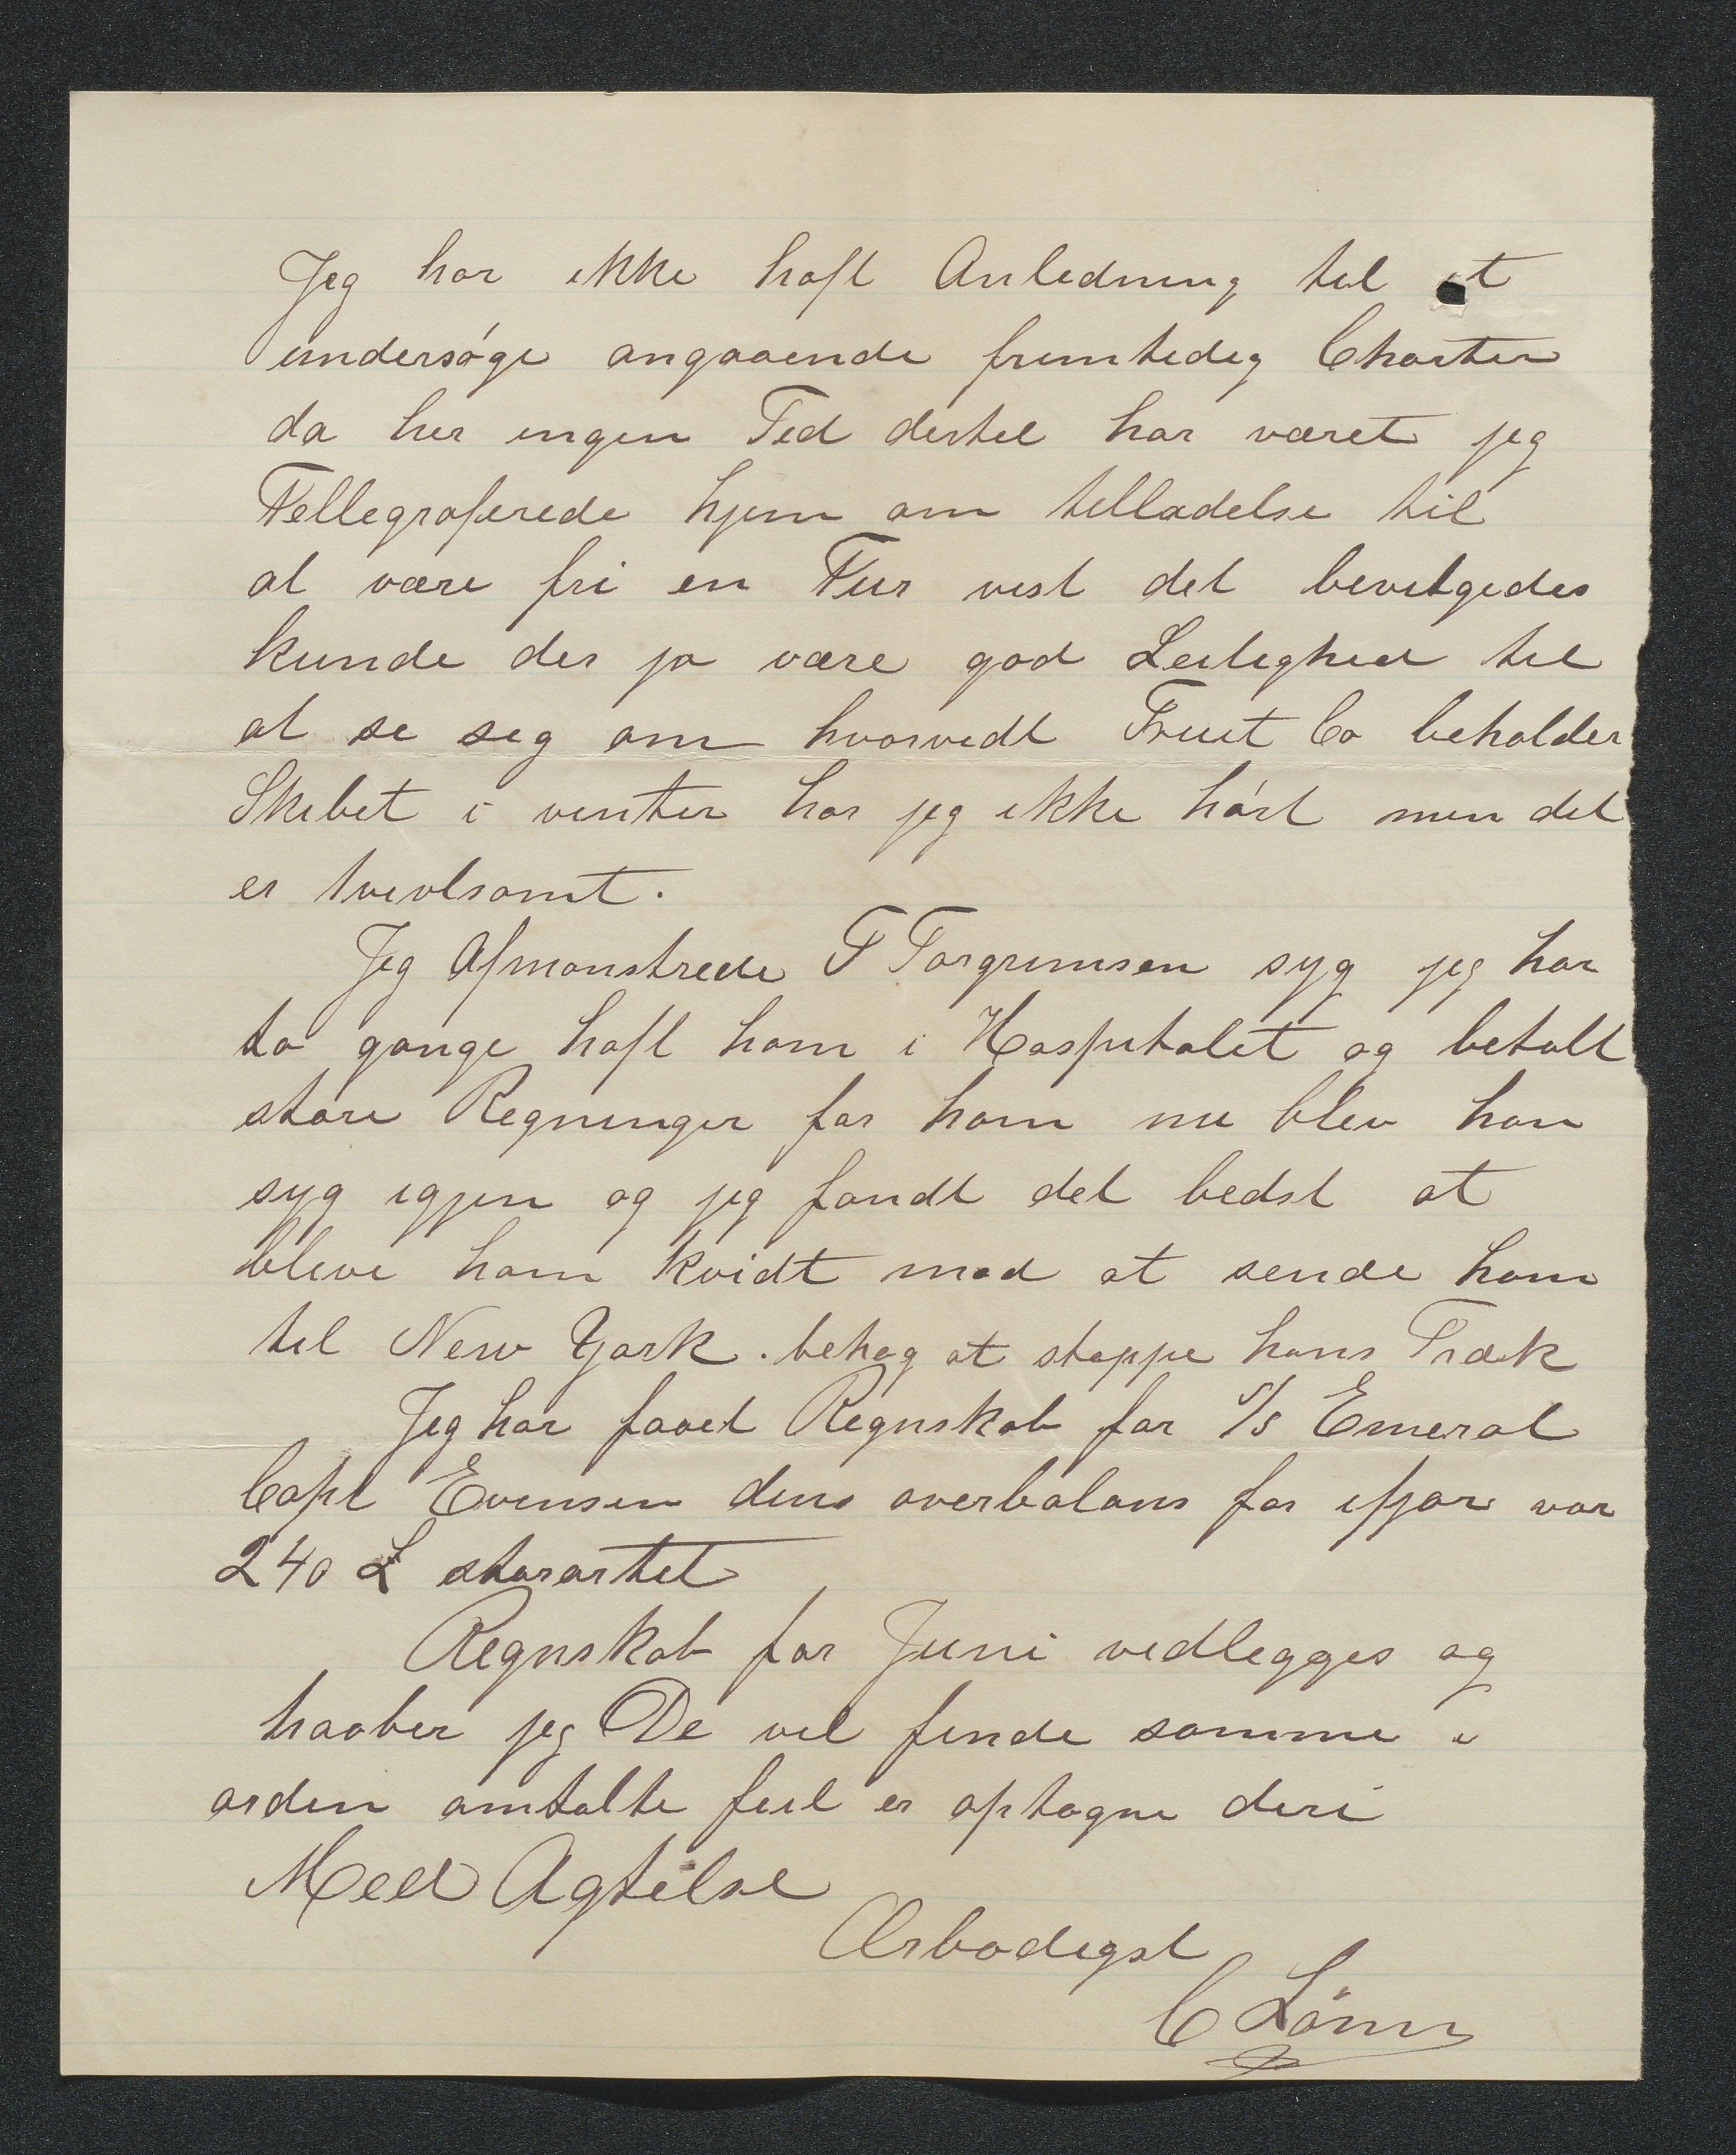 Jeg har ikke haft Anledning til at
undersøge angaaende fremtedig Charter
da her ingen Tid dertil har været jeg
Tellegraferede hjem om tilladelse til
at være fri en Tur vist det bevilgedes
kunde der jo være god Leilighed til
at se seg om hvorvidt Fruit Co beholder
Skibet i vinter har jeg ikke hørt men det
er tvivlsomt.
Jeg Afmønstrede T Torgrimsen syg jeg har
to gange haft ham i Hospitalet og betalt
store Regninger for ham nu blev han
syg igjen og jeg fandt det bedst at
blive ham kvidt med at sende ham
til New York. behag at stoppe hans Træk
Jeg har faaet Regnskab for S/S Emeral
Capt Evensen dens overbalans for ifjor var
240 £ storartet
Regnskab for Juni vedlegges og
haaber jeg De vil finde samme i
orden omtalte feil er optagne deri
Med Agtelse
Ærbødigst
C Lönn